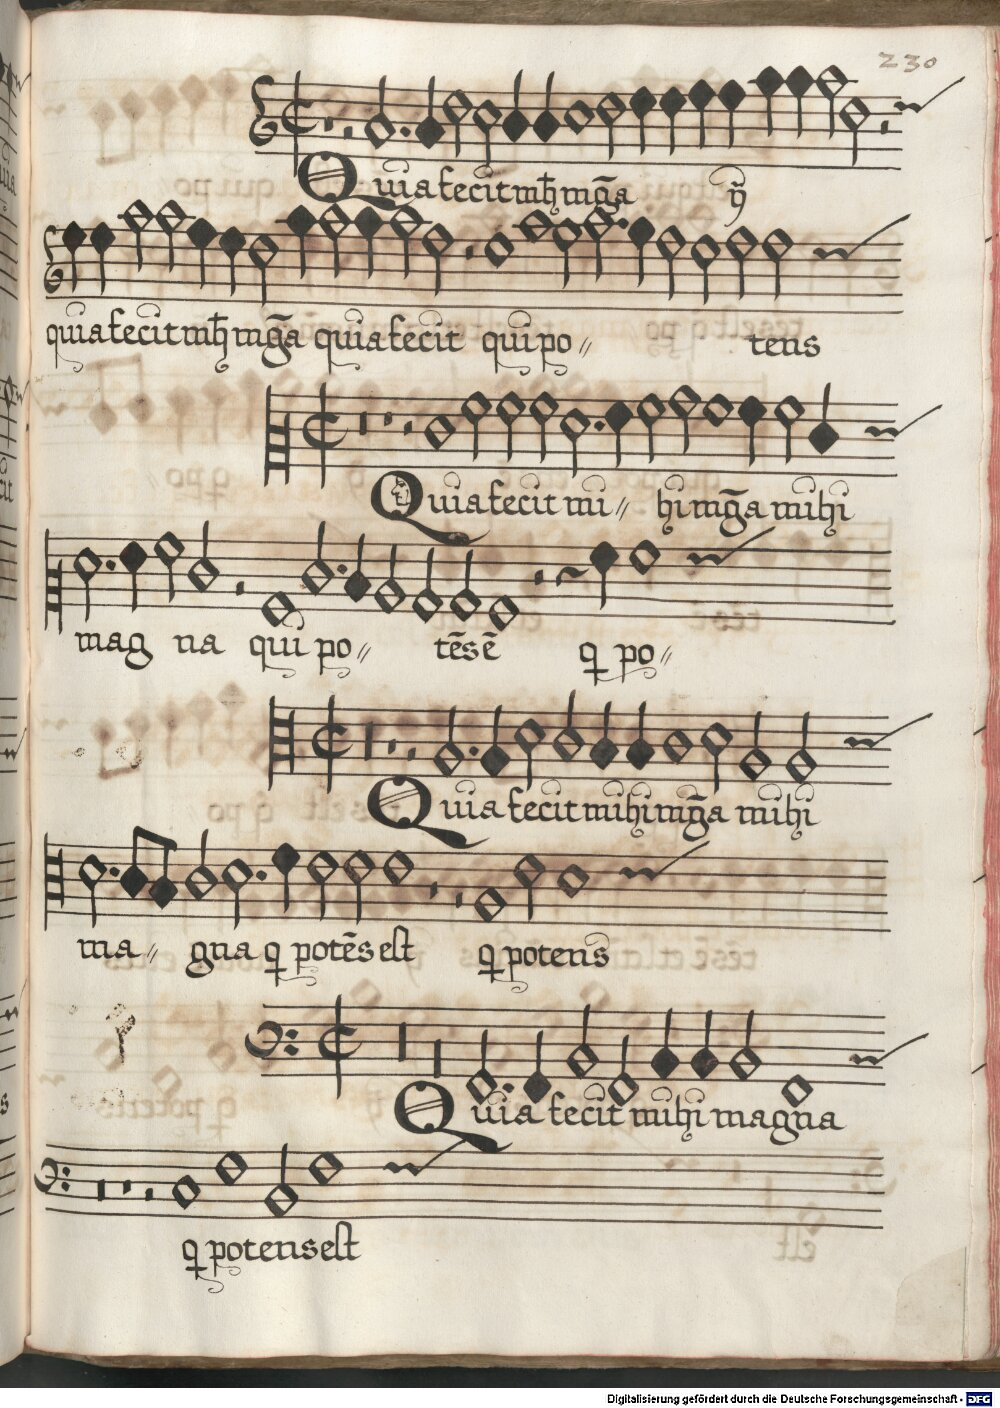 230
Quia fecit mh̄ mg̃a ij
quia fecit mh̄ mg̃a quia fecit qui po〃 tens
Quia fecit mi〃 hi mg̃a mihi
mag na qui po〃 tēs ē q po〃
Quia fecit mihi mg̃a mihi
ma〃 gna q potēs est q potens
Quia fecit mihi magna
q potens est
Digitalisierung gefördert durch die Deutsche Forschungsgemeinschaft - DFG